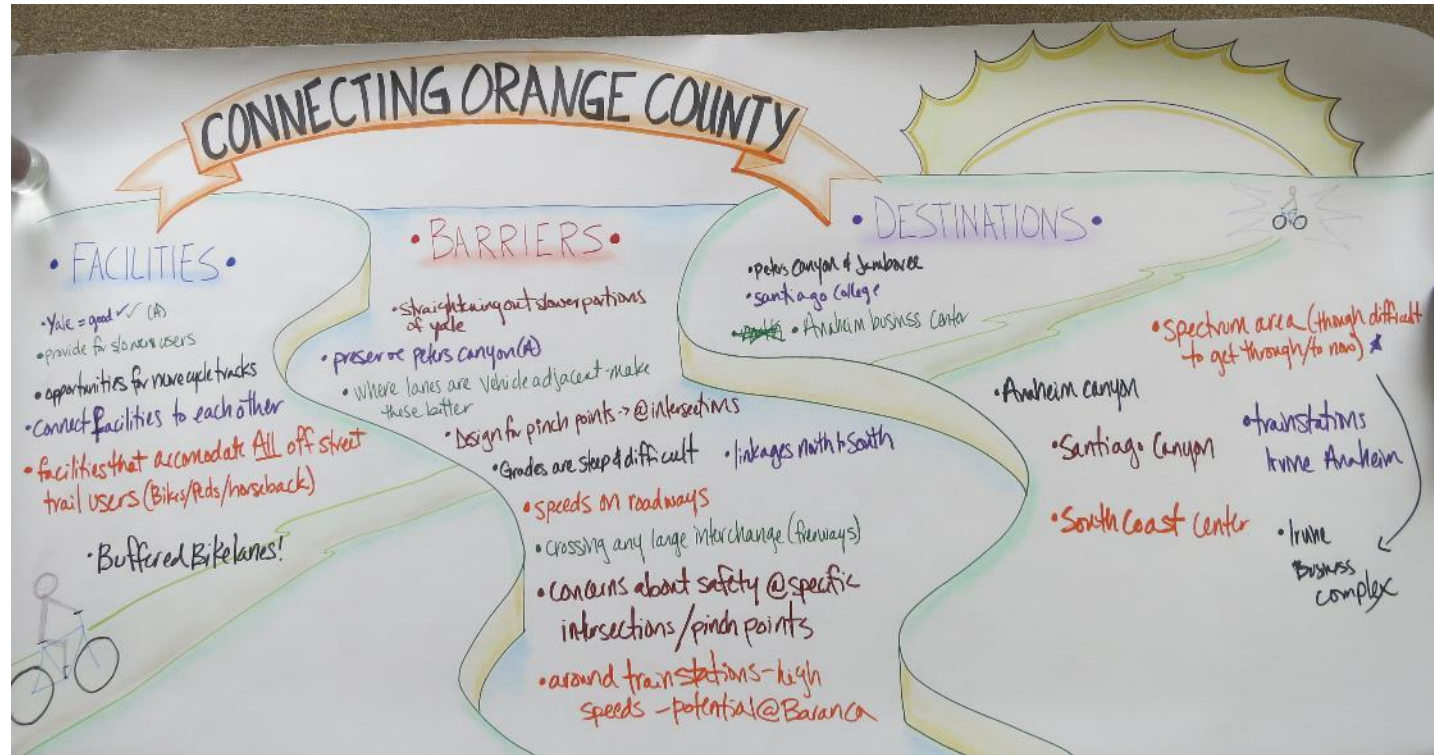 CONNECTING ORANGE COUNTY
• FACILITIES •
• Yale = good ✓✓ (A)
• provide for slower users
• opportunities for more cycle tracks
• Connect facilities to each other
• facilities that accomodate All off street
trail users (Bikes/Peds/horseback)
• Buffered Bikelanes!
• BARRIERS •
• straightening out slower portions
of yale
• preserve peters canyon (A)
• where lanes are vehicle adjacent - make
these better
• Design for pinch points -> @ intersections
• Grades are steep & difficult
• linkages north to south
• speeds on roadways
• crossing any large interchange (freeways)
• concerns about safety @ specific
intersections/pinch points
• around trainstations - high
speeds - potential @ Baranca
• DESTINATIONS •
• peters canyon & Jamboree
• santiago College
• Anaheim business center
• spectrum area (though difficult
to get through/to now) ★
• Anaheim canyon
• Santiago Canyon
• trainstations
Irvine Anaheim
• South Coast Center
• Irvine
Business
complex